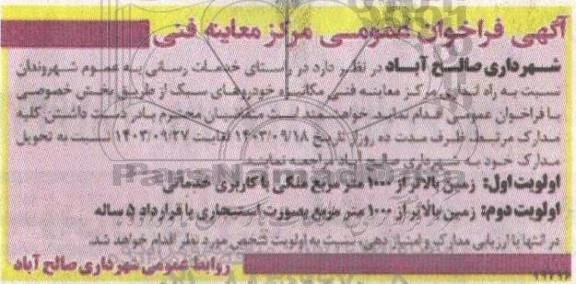 آگهی فراخوان عمومی مرکز معاینه فنی
شهرداری صالح آباد در نظر دارد در راستای خدمات رسانی به عموم شهروندان
نسبت به راه اندازی مرکز معاینه فنی مکانیزه خودروهای سبک از طریق بخش خصوصی
با فراخوان عمومی اقدام نماید. خواهشمند است متقاضیان محترم با در دست داشتن کلیه
مدارک مرتبط ظرف مدت ده روز از تاریخ ۱۴۰۳/۰۹/۱۸ لغایت ۱۴۰۳/۰۹/۲۷ نسبت به تحویل
مدارک خود به شهرداری صالح آباد مراجعه نمایند
ParsNamadData
اولویت اول: زمین بالاتر از ۱۰۰۰ متر مربع ملکی با کاربری خدماتی
اولویت دوم: زمین بالاتر از ۱۰۰۰ متر مربع بصورت استیجاری با قرارداد ۵ ساله
در انتها با ارزیابی مدارک و امتیاز دهی، نسبت به اولویت شخص مورد نظر اقدام خواهد شد.
روابط عمومی شهرداری صالح آباد